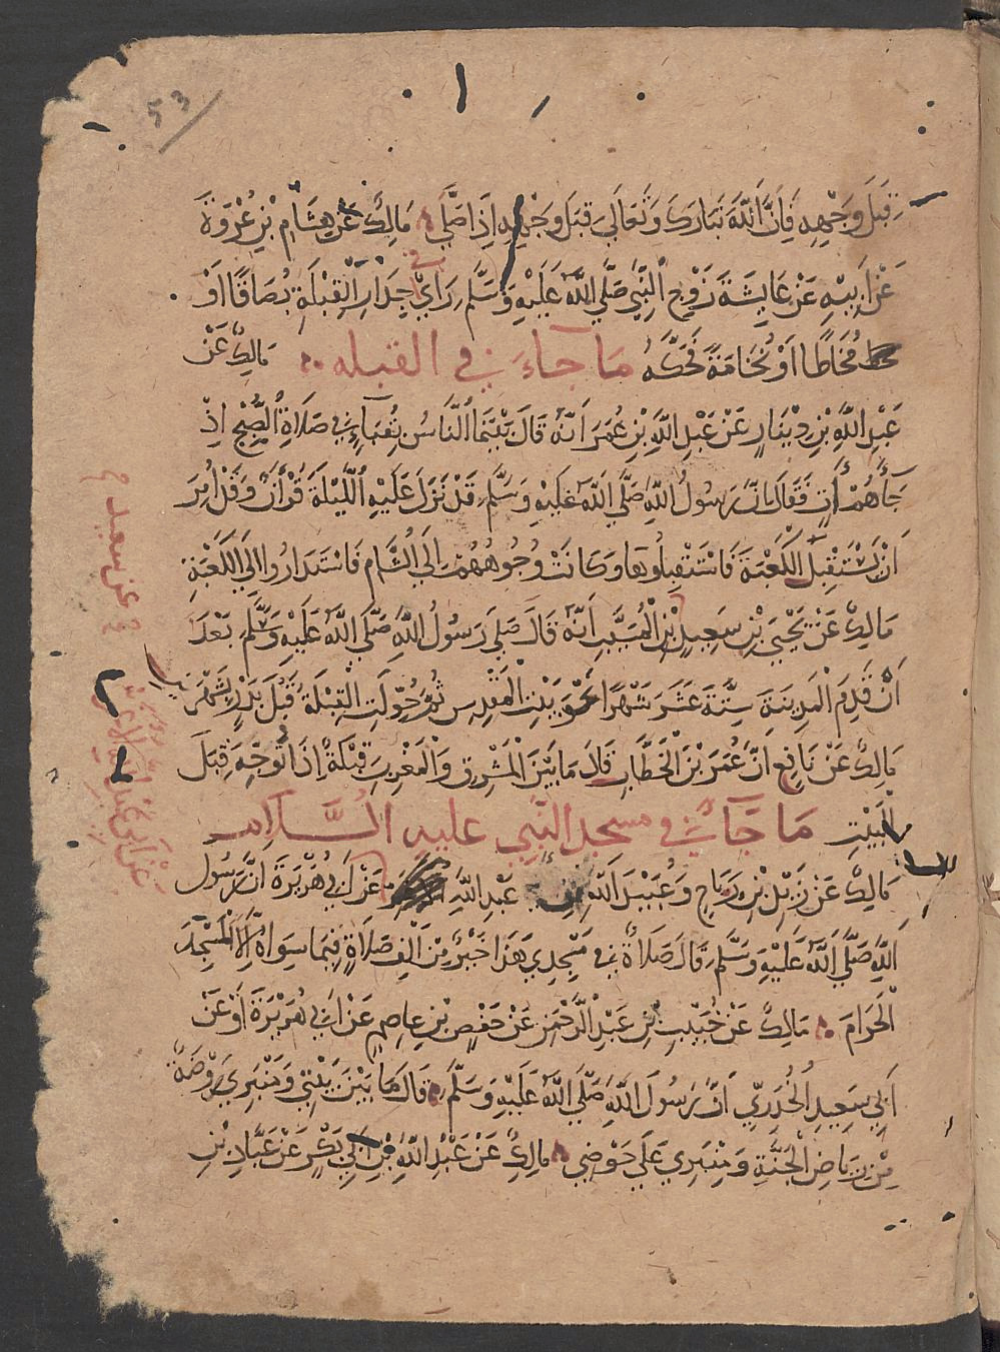 53
قِبَلَ وَجْهِهِ فَإِنَّ اللَّهَ تَبَارَكَ وَتَعَالَى قِبَلَ وَجْهِهِ إِذَا صَلَّى مَالِكٌ عَنْ هِشَامِ بْنِ عُرْوَةَ
عَنْ أَبِيهِ عَنْ عَايِشَةَ زَوْجِ النَّبِيِّ صَلَّى اللَّهُ عَلَيْهِ وَسَلَّمَ رَاى فِي جِدَارِ الْقِبْلَةِ بُصَاقًا اَوْ
مُخَاطًا اَوْ نُخَامَةً فَحَكَّهُ مَا جَاءَ فِي القبله مَالِكٌ عَنْ
عَبْدِ اللَّهِ بْنِ دِينَارٍ عَنْ عَبْدِ اللَّهِ بْنِ عُمَرَ اَنَّهُ قَالَ بَيْنَمَا النَّاسُ بِقُبَاءٍ فِي صَلَاةِ الصُّبْحِ اِذْ
جَاءَهُمْ آتٍ فَقَالَ اِنَّ رَسُولُ اللَّهِ صَلَّى اللَّهُ عَلَيْهِ وَسَلَّمَ قَدْ نَزَلَ عَلَيْهِ اللَّيْلَةَ قُرْآنٌ وَقَدْ اُمِرَ
اَنْ يَسْتَقْبِلَ الْكَعْبَةَ فَاسْتَقْبِلُوهَا وَكَانَتْ وُجُوهُهُمْ اِلَى الشَّامِ فَاسْتَدَارُوا اِلَى الْكَعْبَةِ
مَالِكٌ عَنْ يَحْيَى بْنِ سَعِيدٍ بْنِ الْمُسَيَّبِ اَنَّهُ قَالَ صَلَّى رَسُولُ اللَّهِ صَلَّى اللَّهُ عَلَيْهِ وَسَلَّمَ بَعْدَ
اَنْ قَدِمَ الْمَدِينَةَ سِتَّةَ عَشَرَ شَهْرًا نَحْوَ بَيْتِ الْمَقْدِسِ ثُمَّ حُوِّلَتِ الْقِبْلَةُ قَبْلَ بَدْرٍ بِشَهْرَيْنِ
مَالِكٌ عَنْ نَافِعٍ اَنَّ عُمَرَ بْنَ الْخَطَّابِ قَالَ مَا بَيْنَ الْمَشْرِقِ وَالْمَغْرِبِ قِبْلَةٌ اِذَا تُوُجِّهَ قِبَلَ
الْبَيْتِ مَا جَاءَ فِي مسجد النبي عليه السَّلَام
مَالِكٌ عَنْ زَيْدِ بْنِ رَبَاحٍ وَعُبَيْدِ اللَّهِ بْنِ عَبْدِ اللَّهِ عَنْ اَبِي هُرَيْرَةَ اَنَّ رَسُولَ
اللَّهِ صَلَّى اللَّهُ عَلَيْهِ وَسَلَّمَ قَالَ صَلَاةٌ فِي مَسْجِدِي هَذَا خَيْرٌ مِنْ اَلْفِ صَلَاةٍ فِيمَا سِوَاهُ اِلَّا الْمَسْجِدَ
الْحَرَامَ مَالِكٌ عَنْ خُبَيْبِ بْنِ عَبْدِ الرَّحْمَنِ عَنْ حَفْصِ بْنِ عَاصِمٍ عَنْ اَبِي هُرَيْرَةَ اَوْ عَنْ
اَبِي سَعِيدٍ الْخُدْرِيِّ اَنَّ رَسُولَ اللَّهِ صَلَّى اللَّهُ عَلَيْهِ وَسَلَّمَ قَالَ مَا بَيْنَ بَيْتِي وَمِنْبَرِي رَوْضَةٌ
مِنْ رِيَاضِ الْجَنَّةِ وَمِنْبَرِي عَلَى حَوْضِي مَالِكٌ عَنْ عَبْدِ اللَّهِ بْنِ اَبِي بَكْرٍ عَنْ عَبَّادِ بْنِ
عن سعيد
عن ابي عبد الله الاغر